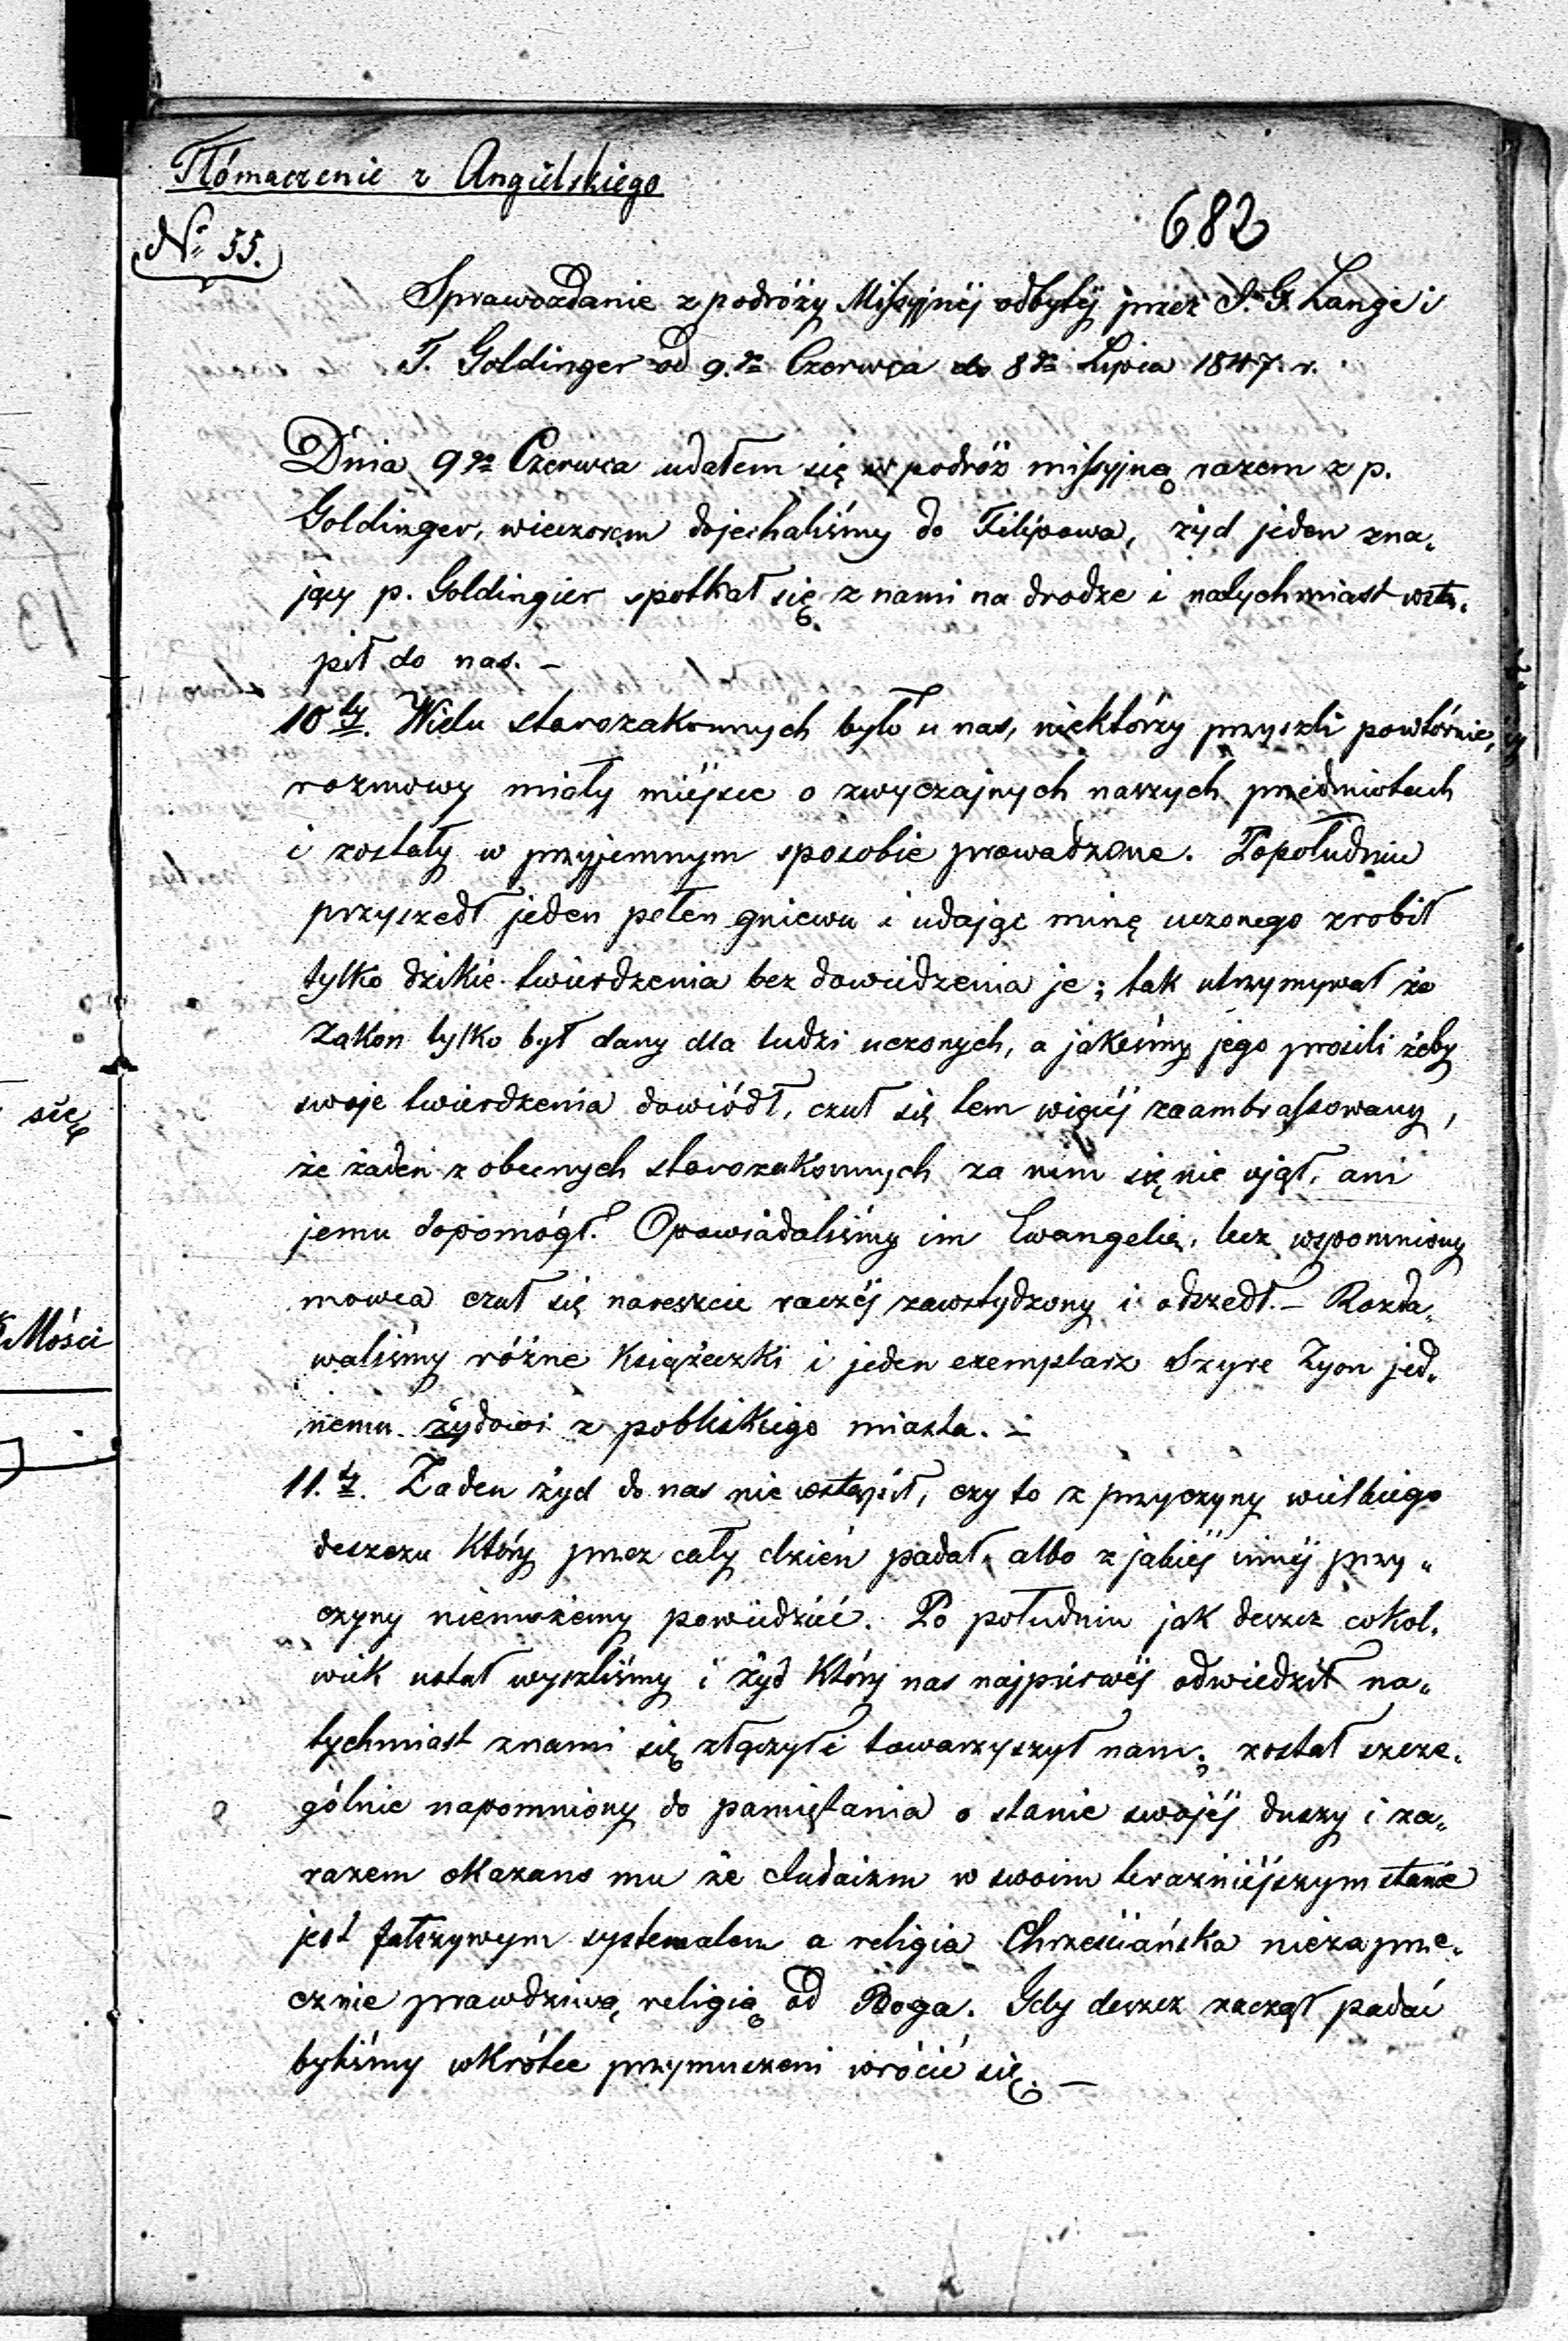 Tłómaczenie z Angielskiego
682
№ 55.
Sprawozdanie z podróży Missyjnéj odbytéj przez J. G. Lange i
T. Goldinger od 9.go Czerwca do 8go Lipca 1847. r.
Dnia 9go Czerwca udałem się w podróż missyjną razem z p.
Goldinger, wieczorem dojechaliśmy do Filipowa, żyd jeden zna„
jący p. Goldingier spotkał się z nami na drodze i natychmiast wstą„
pił do nas. –
10ty. Wielu starozakonnych było u nas, niektórzy przyszli powtórnie,
rozmowy miały miéjsce o zwyczajnych naszych przedmiotach
i zostały w przyjemnym sposobie prowadzone. Popołudniu
przyszedł jeden pełen gniewu i udając minę uczonego zrobił
tylko dzikie twierdzenia bez dowiedzenia je; tak utrzymywał że
Zakon tylko był dany dla ludzi uczonych, a jakeśmy jego prosili żeby
swoje twierdzenia dowiódł, czuł się tem więcéj zaambrassowany,
że żaden z obecnych starozakonnych za nim się nie ujął, ani
jemu dopomógł. Opowiadaliśmy im Ewangelię, lecz wspomniony
mowca czuł się nareszcie raczéj zawstydzony i odszedł. – Rozda„
waliśmy różne książeczki i jeden exemplarz Szyre Zyon jed„
nemu żydowi z pobliskiego miasta. –
11.ty. Żaden żyd do nas nie wstąpił, czy to z przyczyny wielkiego
deszczu który przez cały dzień padał, albo z jakiéj innéj przy„
czyny niemożemy powiedzieć. Po południu jak deszcz cokol„
wiek ustał wyszliśmy i żyd który nas najpierwéj odwiedził na„
tychmiast znami się złączył i towarzyszył nam; został szcze„
gólnie napomniony do pamiętania o stanie swojéj duszy i za„
razem okazano mu że Judaizm w swoim teraźniéjszym stanie
jest fałszywym systematem a religia Chrześciańska niezaprze„
cznie prawdziwą religią od Boga. Gdy deszcz zaczął padać
byliśmy wkrótce przymuszeni wrócić się. –
się
Mości